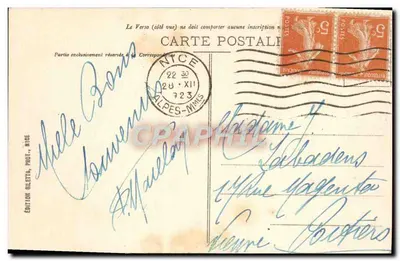 Le Verso (côté vue) ne doit comporter aucune inscription
CARTE POSTALE
Partie exclusivement réservée à la Correspondance
NICE
22
28 · XII
23
ALPES-MMES
POSTES
5c
POSTES
5c
Mille Bons
Souvenirs
Madame
Labadens
17 Rue Magenta
Poitiers
Vienne
ÉDITION GILETTA, PHOT., NICE
CPAPHIL